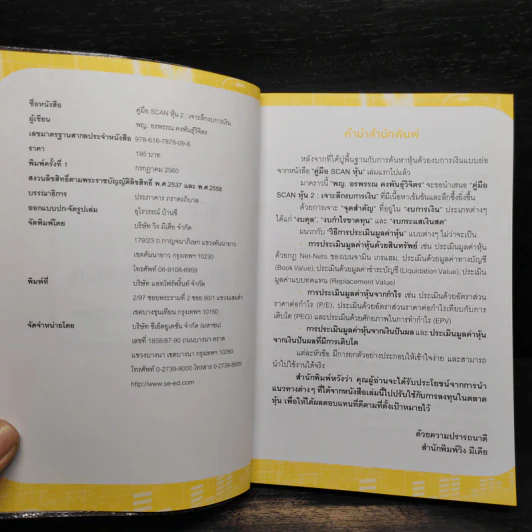 ชื่อหนังสือ คู่มือ SCAN หุ้น 2 : เจาะลึกงบการเงิน
ผู้เขียน พญ. อรพรรณ คงพันธุ์วิจิตร
เลขมาตรฐานสากลประจำหนังสือ 978-616-7878-09-6
ราคา 195 บาท
พิมพ์ครั้งที่ 1 กรกฎาคม 2560
สงวนลิขสิทธิ์ตามพระราชบัญญัติลิขสิทธิ์ พ.ศ.2537 และ พ.ศ.2558
บรรณาธิการ ประภาคาร ภราดรภิบาล
ออกแบบปก-จัดรูปเล่ม สุไรวรรณ์ บ้านชี
จัดพิมพ์โดย บริษัท วิง มีเดีย จำกัด
179/23 ถ.กาญจนาภิเษก แขวงคันนายาว
เขตคันนายาว กรุงเทพฯ 10230
โทรศัพท์ 08-9108-6959
พิมพ์ที่ บริษัท แอทโฟร์พริ้นท์ จำกัด
2/97 ซอยพระรามที่ 2 ซอย 60/1 แขวงแสมดำ
เขตบางขุนเทียน กรุงเทพฯ 10150
จัดจำหน่ายโดย บริษัท ซีเอ็ดยูเคชั่น จำกัด (มหาชน)
เลขที่ 1858/87-90 ถนนบางนา-ตราด
แขวงบางนา เขตบางนา กรุงเทพฯ 10260
โทรศัพท์ 0-2739-8000 โทรสาร 0-2739-8609
http://www.se-ed.com
คำนำสำนักพิมพ์
หลังจากที่ได้ปูพื้นฐานกับการค้นหาหุ้นด้วยงบการเงินแบบย่อ
จากหนังสือ "คู่มือ SCAN หุ้น" เล่มแรกไปแล้ว
มาคราวนี้ "พญ. อรพรรณ คงพันธุ์วิจิตร" จะขอนำเสนอ "คู่มือ
SCAN หุ้น 2 : เจาะลึกงบการเงิน" ที่มีเนื้อหาเข้มข้นและลึกซึ้งยิ่งขึ้น
ด้วยการเจาะ "จุดสำคัญ" ที่อยู่ใน "งบการเงิน" ประเภทต่างๆ
ได้แก่ "งบดุล", "งบกำไรขาดทุน" และ "งบกระแสเงินสด"
ผนวกกับ "วิธีการประเมินมูลค่าหุ้น" แบบต่างๆ ไม่ว่าจะเป็น
· การประเมินมูลค่าหุ้นด้วยสินทรัพย์ เช่น ประเมินมูลค่าหุ้น
ด้วยกฎ Net-Nets ของเบนจามิน เกรแฮม, ประเมินด้วยมูลค่าทางบัญชี
(Book Value), ประเมินด้วยมูลค่าชำระบัญชี (Liquidation Value), ประเมิน
มูลค่าแบบทดแทน (Replacement Value)
· การประเมินมูลค่าหุ้นจากกำไร เช่น ประเมินด้วยอัตราส่วน
ราคาต่อกำไร (P/E), ประเมินด้วยอัตราส่วนราคาต่อกำไรเทียบกับการ
เติบโต (PEG) และประเมินด้วยศักยภาพในการทำกำไร (EPV)
· การประเมินมูลค่าหุ้นจากเงินปันผล และประเมินมูลค่าหุ้น
จากเงินปันผลที่มีการเติบโต
แต่ละหัวข้อ มีการยกตัวอย่างประกอบให้เข้าใจง่าย และสามารถ
นำไปใช้งานได้จริง
สำนักพิมพ์หวังว่า คุณผู้อ่านจะได้รับประโยชน์จากการนำ
แนวทางต่างๆ ที่ได้จากหนังสือเล่มนี้ไปปรับใช้กับการลงทุนในตลาด
หุ้น เพื่อให้ได้ผลตอบแทนที่ดีตามที่ตั้งเป้าหมายไว้
ด้วยความปรารถนาดี
สำนักพิมพ์วิง มีเดีย